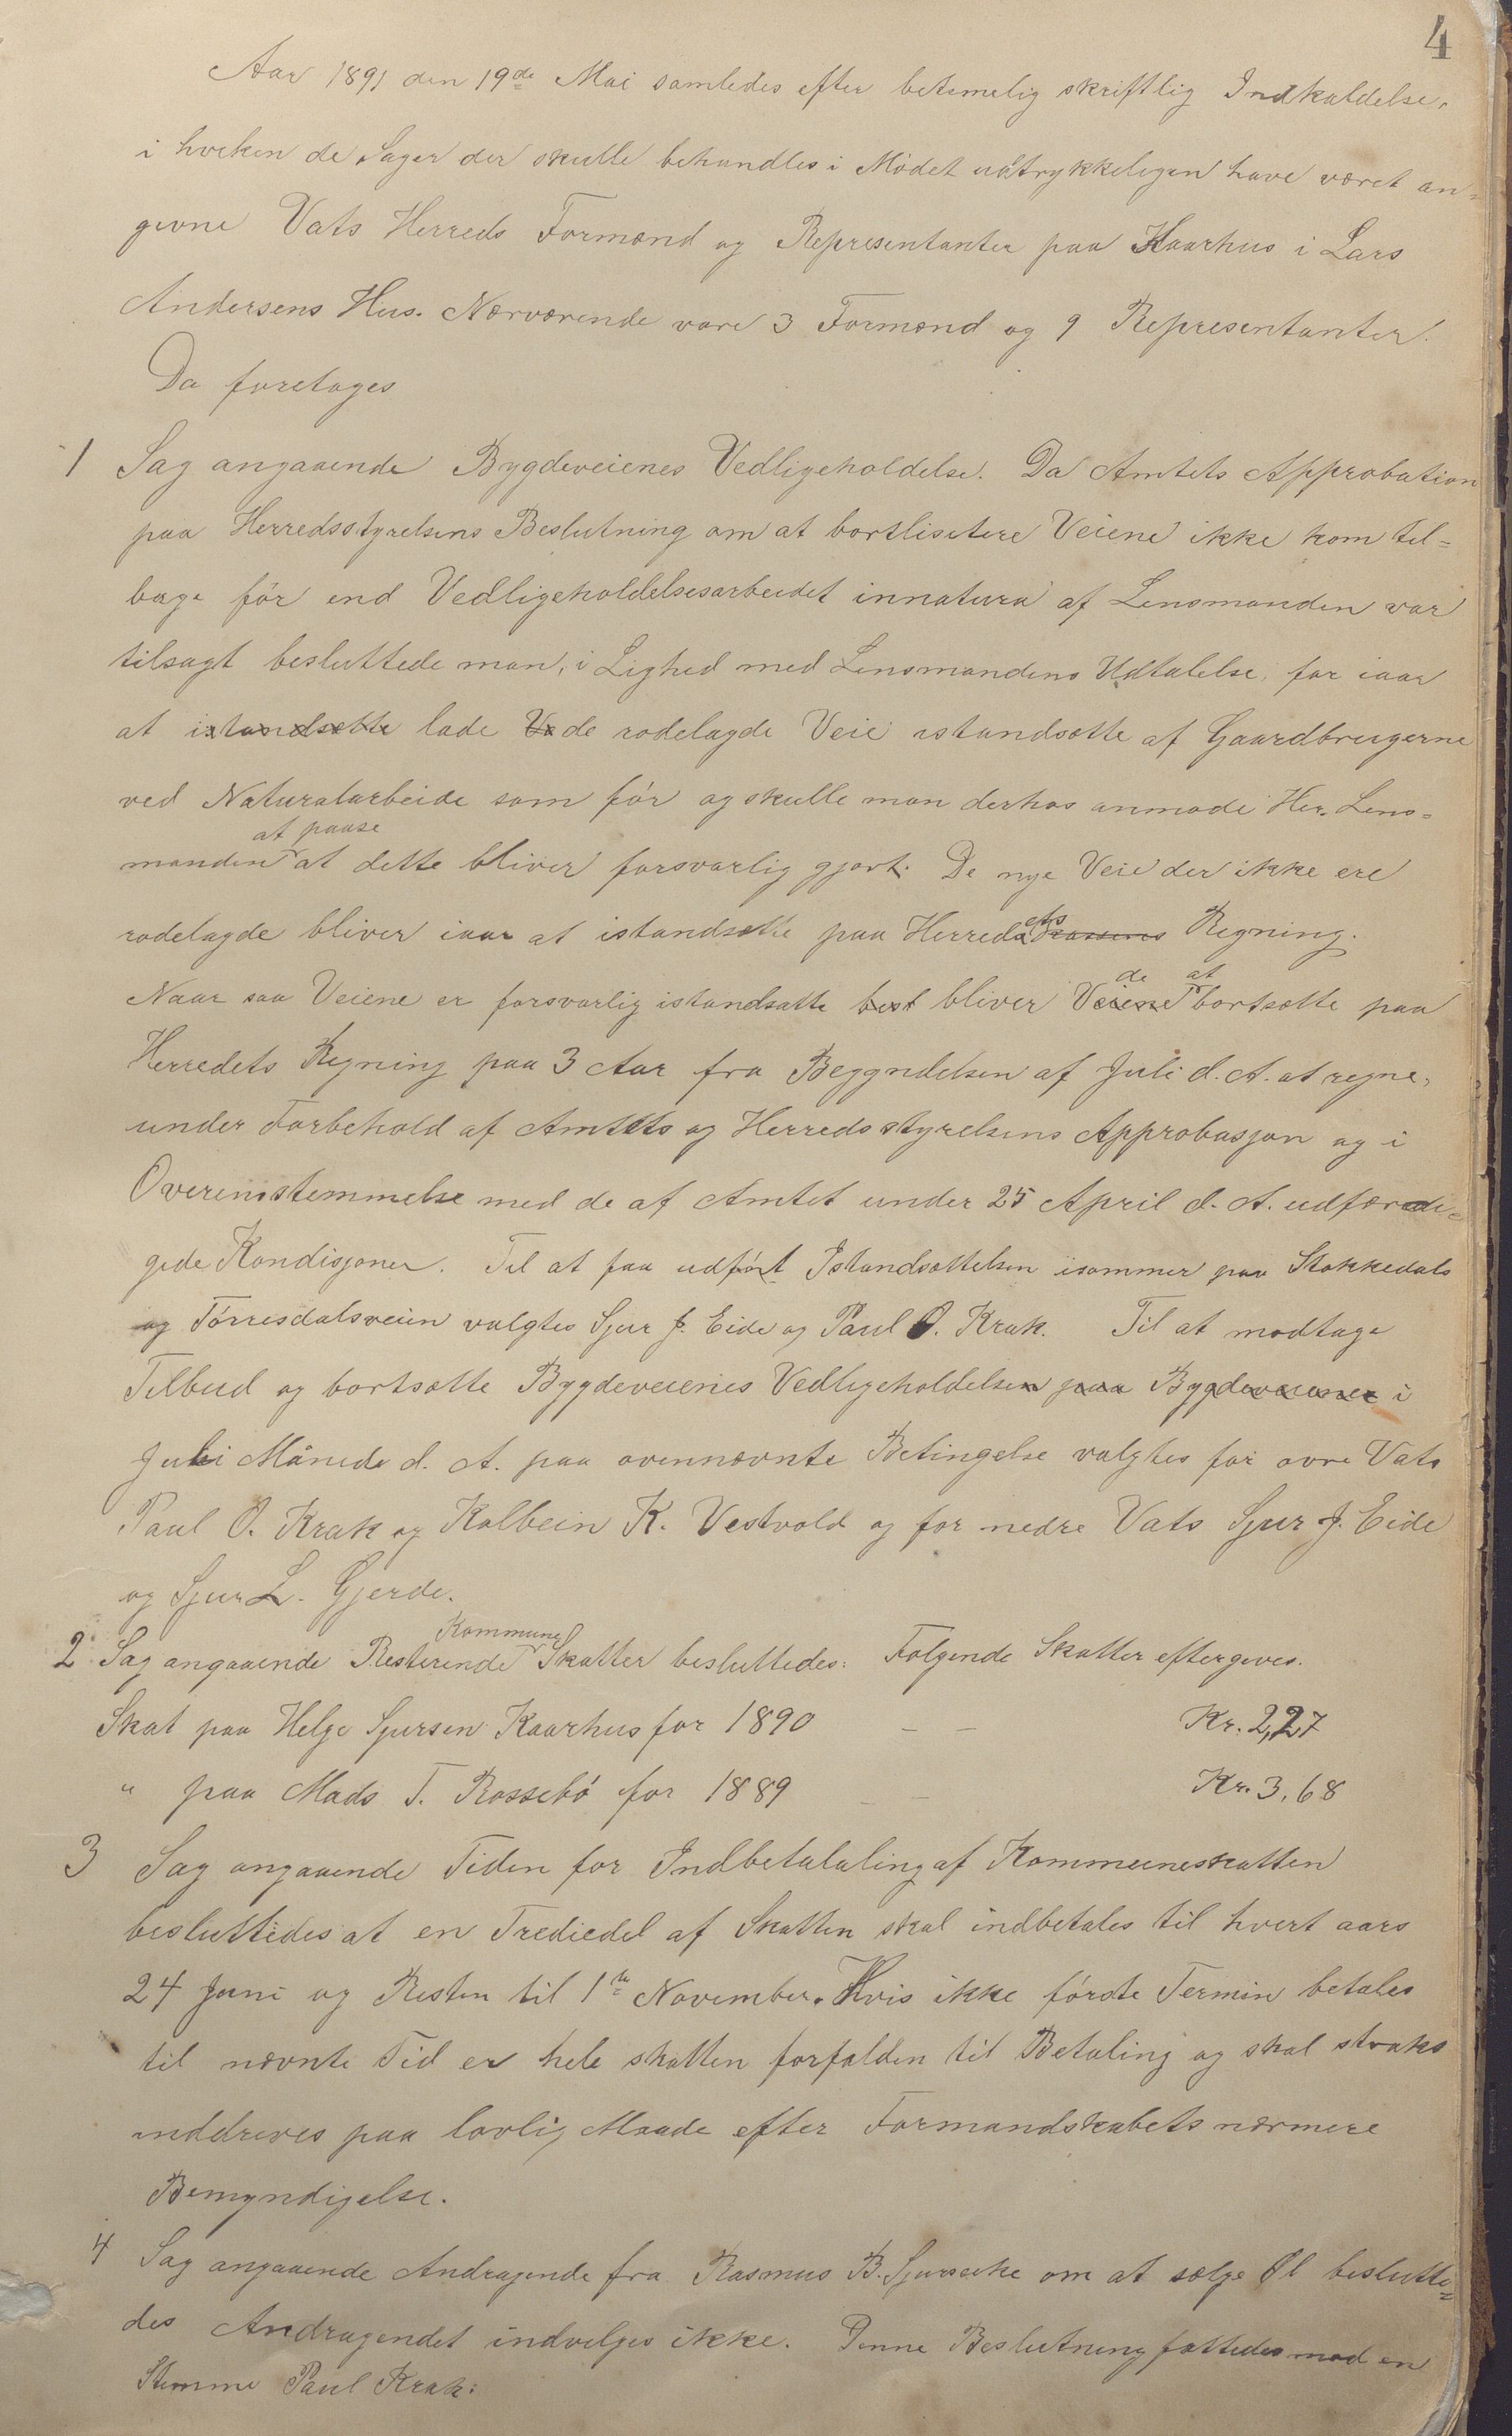 4
Aar 1891 den 19de Mai samledes efter betimelig skriftlig Indkaldelse,
i hveken de Sager der skulle behandles i Mødet udtrykkeligen have været an=
givne Vats Herreds Formænd og Representanter paa Kaarhus i Lars
Andersens Hus. Nærværende vare 3 Formænd og 9 Representanter.
Da foretoges
1 Sag angaaende Bygdeveienes Vedligeholdelse. Da Amtets Approbation
paa Herredsstyrelsens Beslutning om at bortlisitere Veiene ikke kom til=
bage før end Vedligeholdelsesarbeidet innatura af Lensmanden var
tilsagt besluttede man, i Lighed med Lensmandens Udtalelse, for iaar
at istandsætte lade Ve de rodelagde Veie istandsætte af Gaardbrugerne
ved Naturalarbeide som før og skulle man derhos anmode Her. Lens=
at paase
manden at dette bliver forsvarlig gjort. De nye Veie der ikke ere
rodelagde bliver iaar at istandsætte paa Herredets Kassens Regning.
de at
Naar saa Veiene er forsvarlig istandsatte best bliver Veiene bortsætte paa
Herredets Regning paa 3 Aar fra Begyndelsen af Juli d. A. at regne,
under Forbehold af Amtets og Herredsstyrelsens Approbasjon og i
Overensstemmelse med de af Amtet under 25 April d. A. udfærdi=
gede Kondisjoner. Til at faa udført Istandsættelsen isommer paa Stokkedals
og Tørresdalsveien valgtes Sjur J. Eide og Paul O. Krak. Til at modtage
Tilbud og bortsætte Bygdeveienes Vedligeholdelsen paa Bygdeveiene i
Juli Måneds d. A. paa ovennævnte Betingelse valgtes for øvre Vats
Paul O. Krak og Kolbein K. Vestvold og for nedre Vats Sjur J. Eide
og Sjur L. Gjerde.
Kommune
2 Sag angaaende Resterende Skatter besluttedes: Følgende Skatter eftergives.
Skat paa Helge Sjursen Kaarhus for 1890 — — Kr. 2,27
" paa Mads T. Rossebø for 1889 — — Kr. 3,68
3 Sag angaaende Tiden for Indbetalaling af Kommuneskatten
besluttedes at en Trediedel af Skatten skal indbetales til hvert aars
24 Juni og Resten til 1te November. Hvis ikke første Termin betales
til nævnte Tid er hele skatten forfalden til Betaling og skal straks
inddrives paa lovlig Maade efter Formandskabets nærmere
Bemyndigelse.
4 Sag angaaende Andragende fra Rasmus B. om at sælge Øl beslutte=
des Andragendet indvilges ikke. Denne Beslutning fattedes mod en
Stemme Paul Krak.